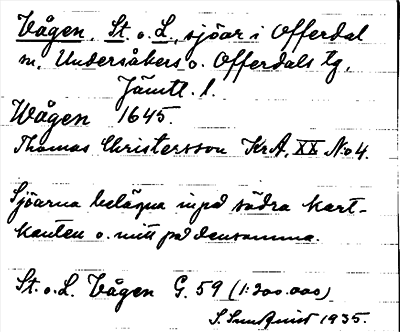 Vågen, St. o. L., sjöar i Offerdal
m. Undersåkers o. Offerdals tg,
Jämtl. l.
Wågen 1645.
Thomas Christersson KrA, XX No 4.
Sjöarna belägna inpå södra kart-
kanten o. mitt på densamma.
St. o. L. Vågen G. 59 (1:200.000)
S. Sundquist 1935.